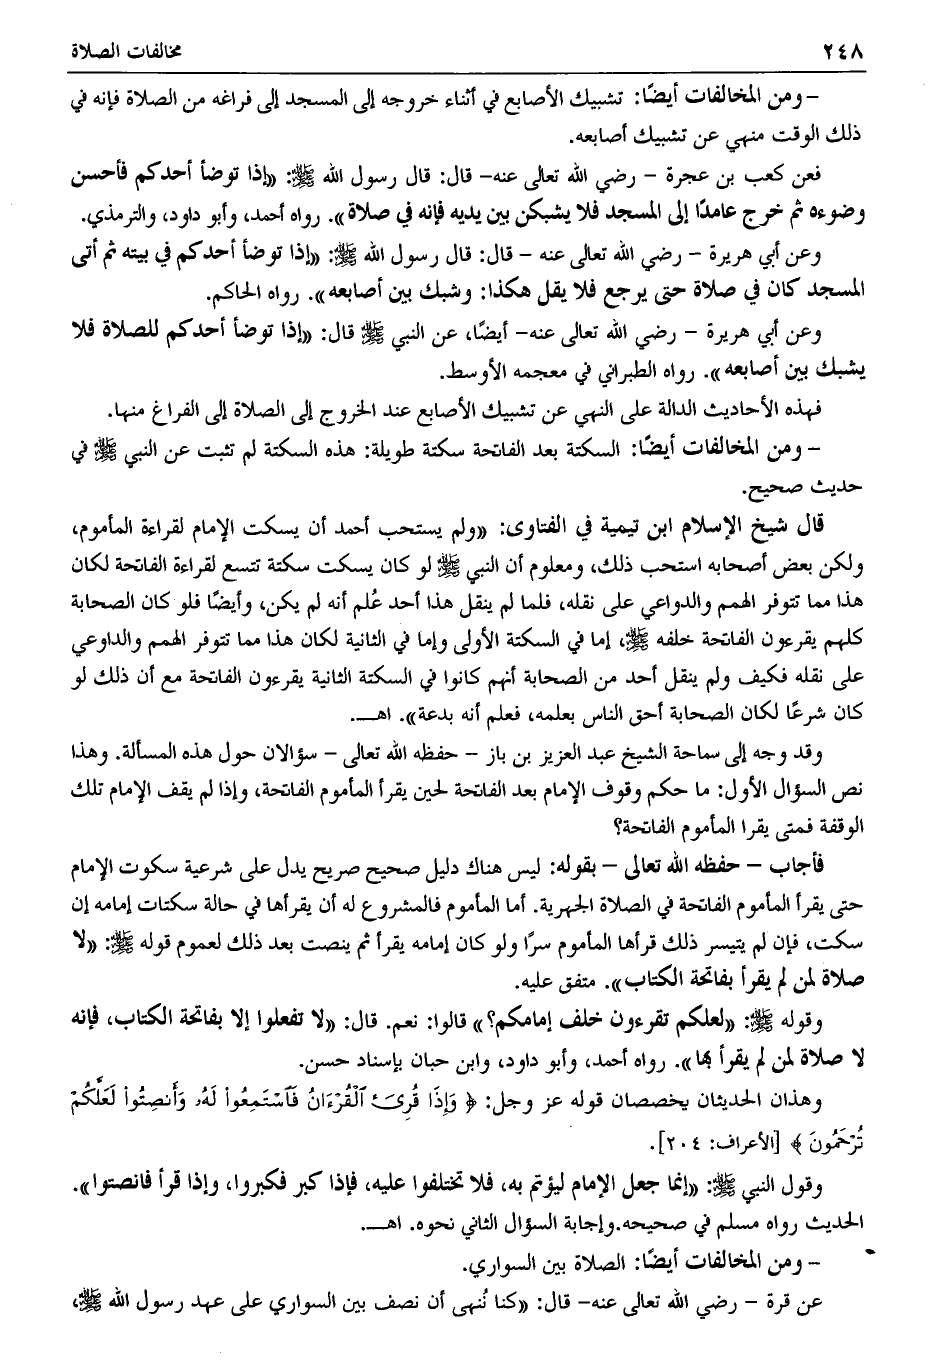 ٢٤٨
مخالفات الصلاة
– ومن المخالفات أيضًا: تشبيك الأصابع في أثناء خروجه إلى المسجد إلى فراغه من الصلاة فإنه في
ذلك الوقت منهي عن تشبيك أصابعه.
فعن كعب بن عجرة – رضي الله تعالى عنه– قال: قال رسول الله ﷺ: «إذا توضأ أحدكم فأحسن
وضوءه ثم خرج عامدًا إلى المسجد فلا يشبكن بين يديه فإنه في صلاة». رواه أحمد، وأبو داود، والترمذي.
وعن أبي هريرة – رضي الله تعالى عنه – قال: قال رسول الله ﷺ: «إذا توضأ أحدكم في بيته ثم أتى
المسجد كان في صلاة حتى يرجع فلا يقل هكذا: وشبك بين أصابعه». رواه الحاكم.
وعن أبي هريرة – رضي الله تعالى عنه– أيضًا، عن النبي ﷺ قال: «إذا توضأ أحدكم للصلاة فلا
يشبك بين أصابعه». رواه الطبراني في معجمه الأوسط.
فهذه الأحاديث الدالة على النهي عن تشبيك الأصابع عند الخروج إلى الصلاة إلى الفراغ منها.
– ومن المخالفات أيضًا: السكتة بعد الفاتحة سكتة طويلة: هذه السكتة لم تثبت عن النبي ﷺ في
حديث صحيح.
قال شيخ الإسلام ابن تيمية في الفتاوى: «ولم يستحب أحمد أن يسكت الإمام لقراءة المأموم،
ولكن بعض أصحابه استحب ذلك، ومعلوم أن النبي ﷺ لو كان يسكت سكتة تتسع لقراءة الفاتحة لكان
هذا مما تتوفر الهمم والدواعي على نقله، فلما لم ينقل هذا أحد عُلم أنه لم يكن، وأيضًا فلو كان الصحابة
كلهم يقرءون الفاتحة خلفه ﷺ، إما في السكتة الأولى وإما في الثانية لكان هذا مما تتوفر الهمم والداوعي
على نقله فكيف ولم ينقل أحد من الصحابة أنهم كانوا في السكتة الثانية يقرءون الفاتحة مع أن ذلك لو
كان شرعًا لكان الصحابة أحق الناس بعلمه، فعلم أنه بدعة». اهـ.
وقد وجه إلى سماحة الشيخ عبد العزيز بن باز – حفظه الله تعالى – سؤالان حول هذه المسألة. وهذا
نص السؤال الأول: ما حكم وقوف الإمام بعد الفاتحة لحين يقرأ المأموم الفاتحة، وإذا لم يقف الإمام تلك
الوقفة فمتى يقرا المأموم الفاتحة؟
فأجاب – حفظه الله تعالى – بقوله: ليس هناك دليل صحيح صريح يدل على شرعية سكوت الإمام
حتى يقرأ المأموم الفاتحة في الصلاة الجهرية. أما المأموم فالمشروع له أن يقرأها في حالة سكتات إمامه إن
سكت، فإن لم يتيسر ذلك قرأها المأموم سرًا ولو كان إمامه يقرأ ثم ينصت بعد ذلك لعموم قوله ﷺ: «لا
صلاة لمن لم يقرأ بفاتحة الكتاب». متفق عليه.
وقوله ﷺ: «لعلكم تقرءون خلف إمامكم؟» قالوا: نعم. قال: «لا تفعلوا إلا بفاتحة الكتاب، فإنه
لا صلاة لمن لم يقرأ بها». رواه أحمد، وأبو داود، وابن حبان بإسناد حسن.
وهذان الحديثان يخصصان قوله عز وجل: ﴿ وَإِذَا قُرِئَ ٱلْقُرْءَانُ فَٱسْتَمِعُوا۟ لَهُۥ وَأَنصِتُوا۟ لَعَلَّكُمْ
تُرْحَمُونَ ﴾ [الأعراف: ٢٠٤].
وقول النبي ﷺ: «إنما جعل الإمام ليؤتم به، فلا تختلفوا عليه، فإذا كبر فكبروا، وإذا قرأ فانصتوا».
الحديث رواه مسلم في صحيحه.وإجابة السؤال الثاني نحوه. اهـ.
– ومن المخالفات أيضًا: الصلاة بين السواري.
عن قرة – رضي الله تعالى عنه– قال: «كنا نُنهى أن نصف بين السواري على عهد رسول الله ﷺ،